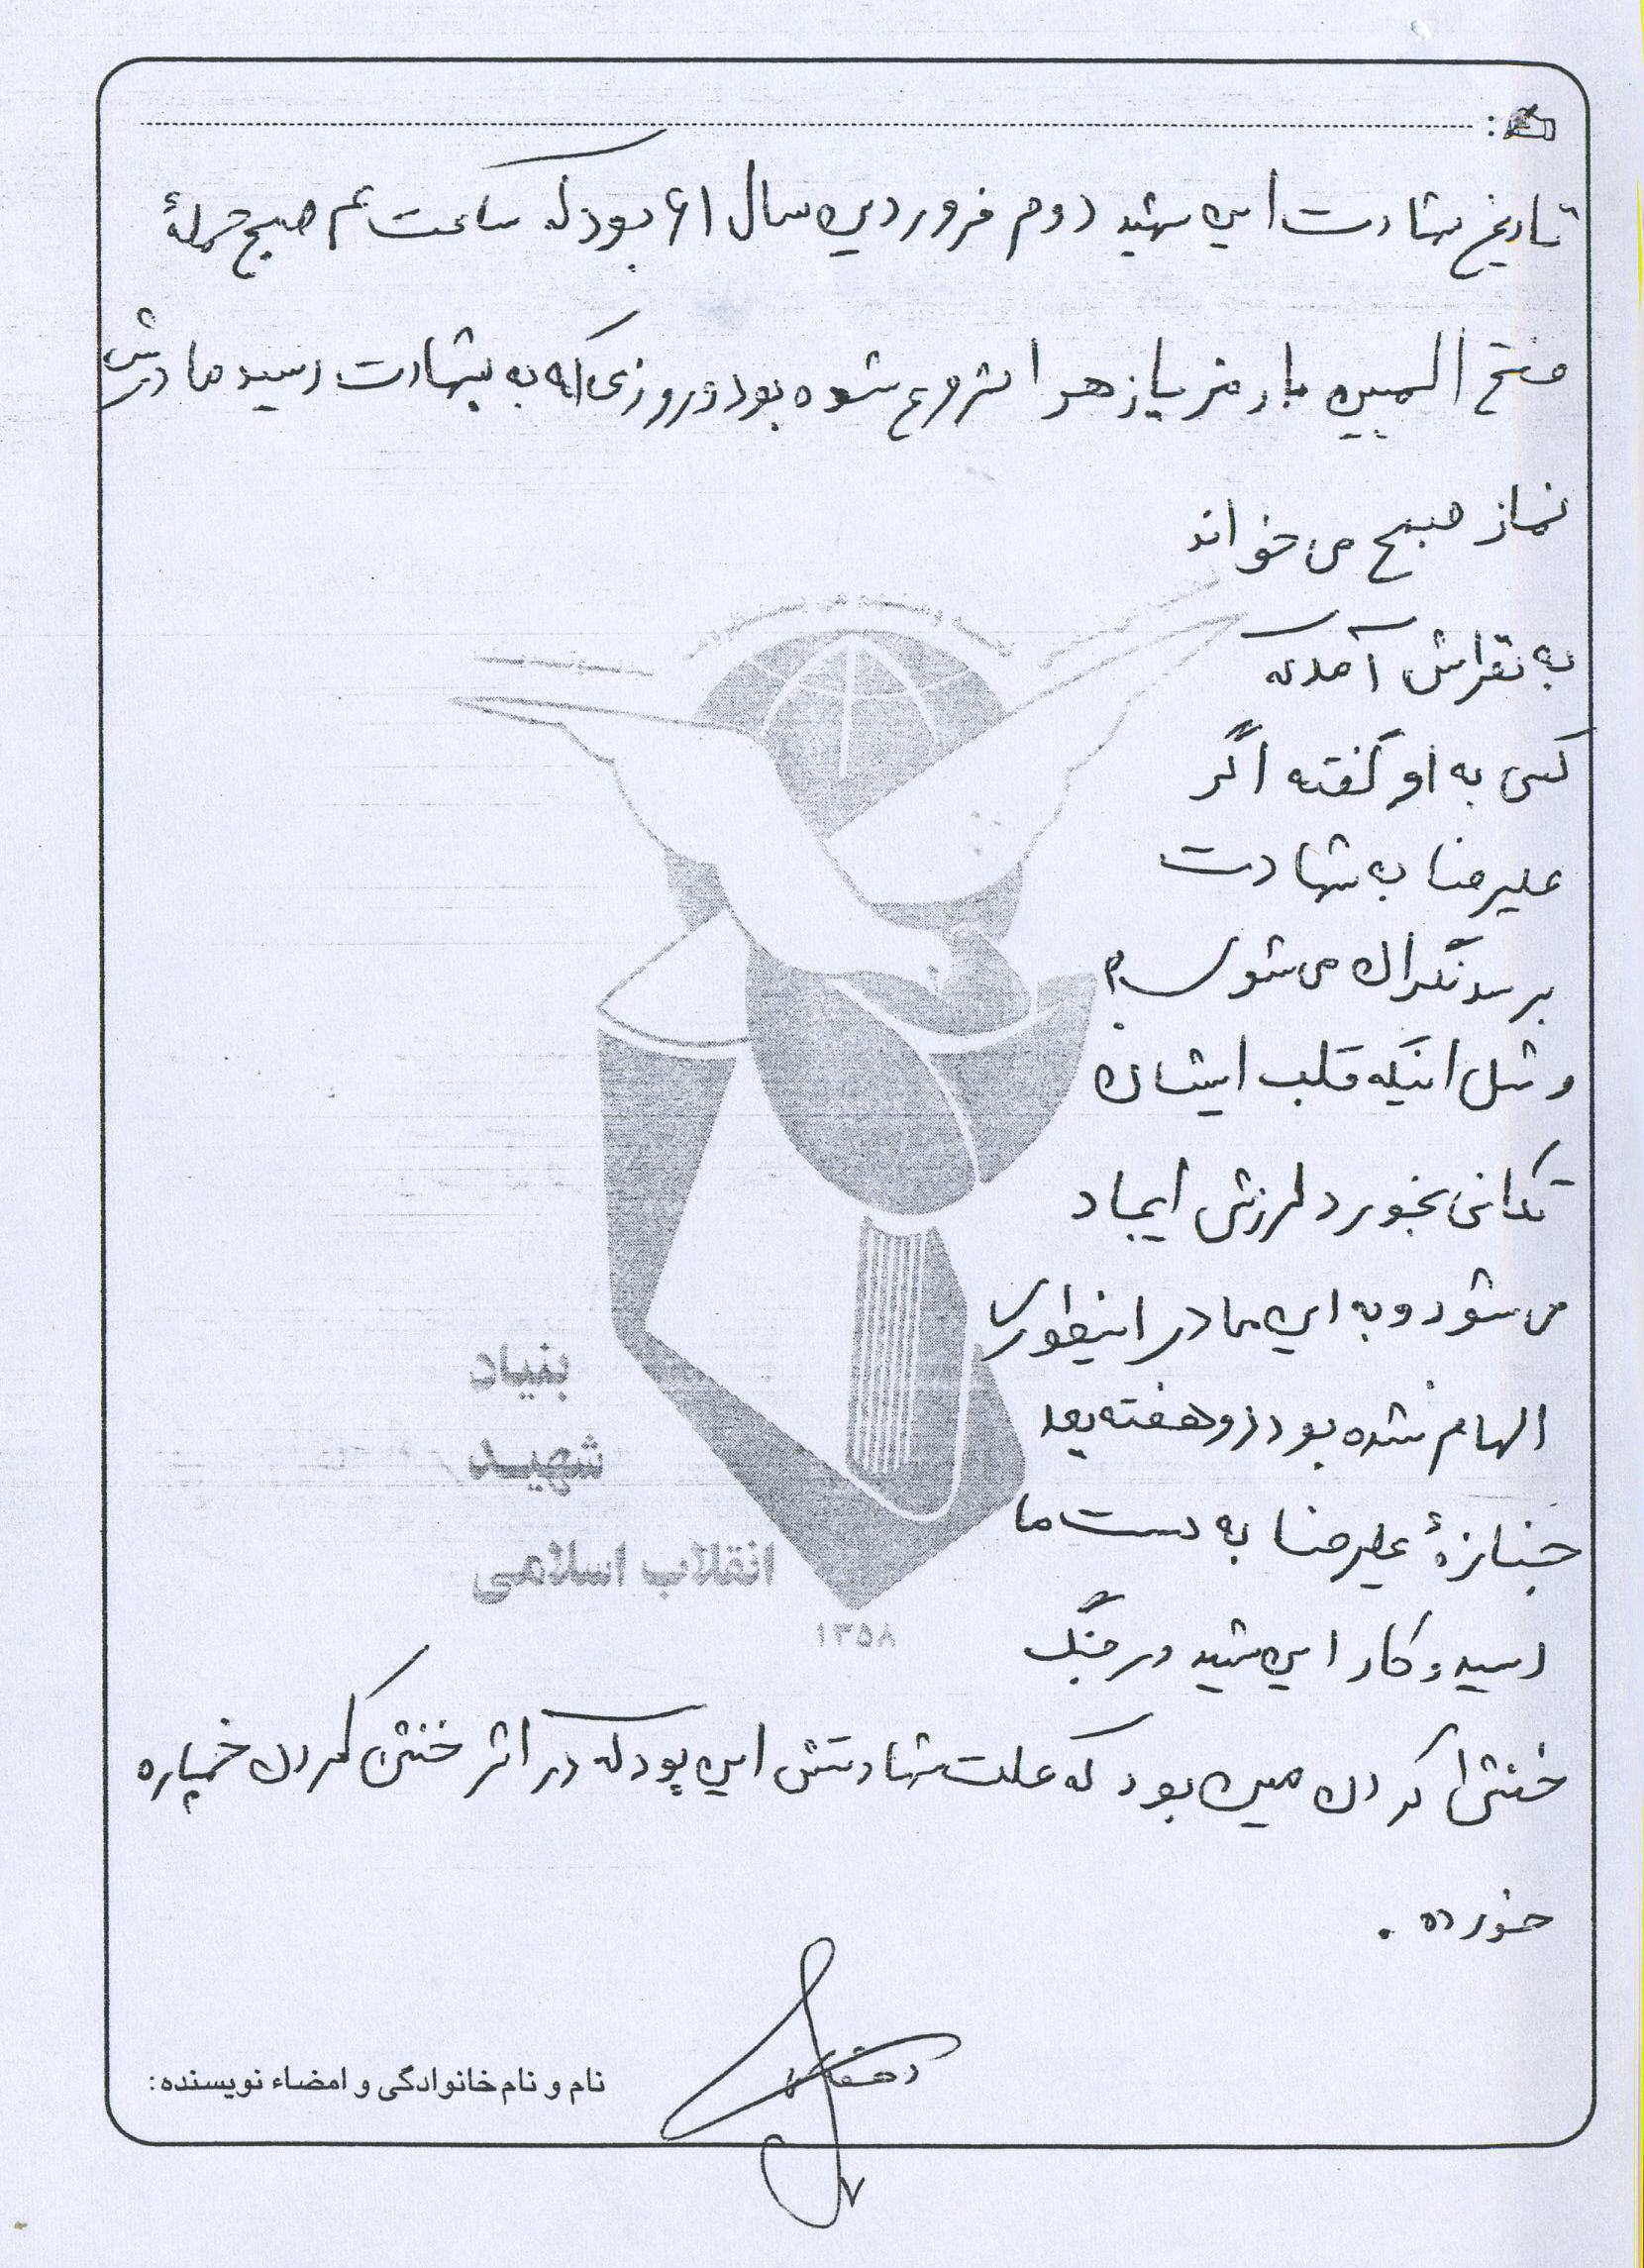 تاریخ شهادت این شهید دوم فروردین سال ۶۱ بود که ساعت ۴ صبح حملهٔ
فتح المبین با رمز یا زهرا شروع شده بود و روزی که به شهادت رسید مادرش
نماز صبح می خواند
به نظرش آمد که
کسی به او گفته اگر
علیرضا به شهادت
برسد نگران می شوی
و مثل اینکه قلب ایشان
تکانی بخورد لرزش ایجاد
می شود و به این مادر اینطوری
الهام شده بود دو هفته بعد
جنازهٔ علیرضا به دست ما
رسید و کار این شهید در جنگ
خنثی کردن مین بود که علت شهادتش این بود که در اثر خنثی کردن خمپاره
خورده .
بنیاد
شهید
انقلاب اسلامی
۱۳۵۸
نام و نام خانوادگی و امضاء نویسنده: